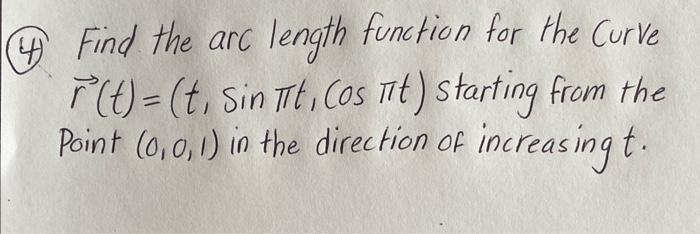 ④ Find the arc length function for the Curve
r⃗(t) = (t, sin πt, Cos πt) starting from the
Point (0,0,1) in the direction of increasing t.